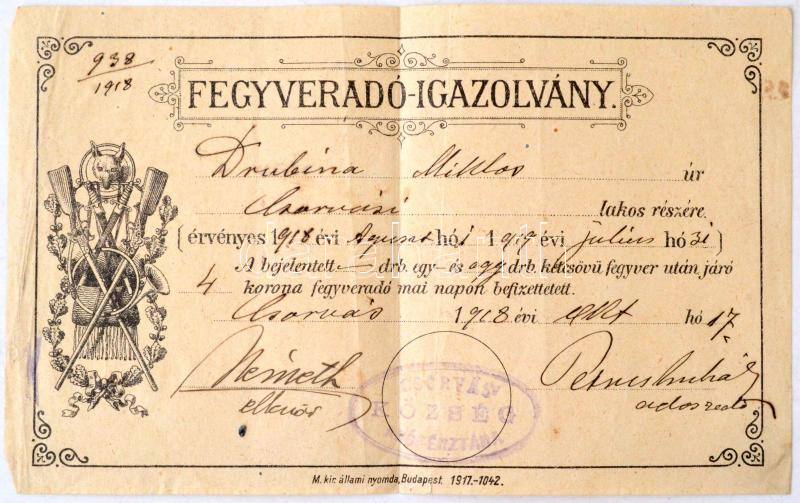 938
1918
FEGYVERADÓ-IGAZOLVÁNY.
Drubina Miklos úr
Csorvási lakos részére.
(érvényes 1918 évi August hó 1 1919 évi július hó 31)
A bejelentett — drb. egy- és egy drb. kétcsövű fegyver után járó
4 korona fegyveradó mai napon befizettetett.
Csorvás 1918 évi Okt hó 17
Németh
ellenőr
adószedő
CSORVÁS
KÖZSÉG
M. kir. állami nyomda, Budapest. 1917.-1042.